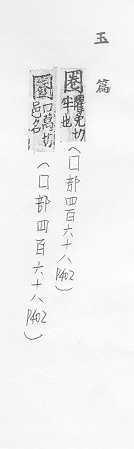 玉篇
圈 懼免切 牢也 (口部四百六十八P402)
圈 口萬切 邑名 (口部四百六十八P402)